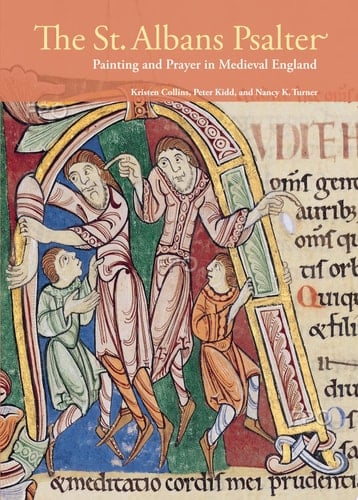 The St. Albans Psalter
Painting and Prayer in Medieval England
Kristen Collins, Peter Kidd, and Nancy K. Turner
UDITE H
om̅s gent
auribu
om̅s qu
tis orb
Quiq
& fili
sa
& meditatio cordis mei prudenti